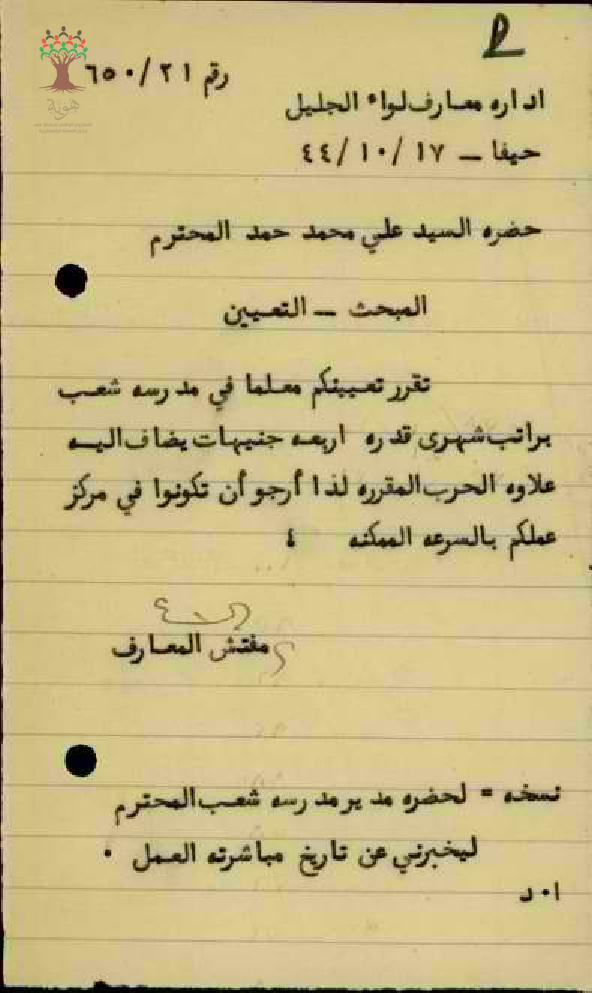 رقم ٦٥٠/٢١
اداره معارف لواء الجليل
حيفا — ٤٤/١٠/١٧
حضره السيد علي محمد حمد المحترم
المبحث — التعيين
تقرر تعيينكم معلما في مدرسه شعب
براتب شهرى قدره اربعه جنيهات يضاف اليه
علاوه الحرب المقرره لذا أرجو أن تكونوا في مركز
عملكم بالسرعه الممكنه ٤
مفتش المعارف
نسخه = لحضره مدير مدرسه شعب المحترم
ليخبرني عن تاريخ مباشرته العمل ٠
ا٠د
هوية